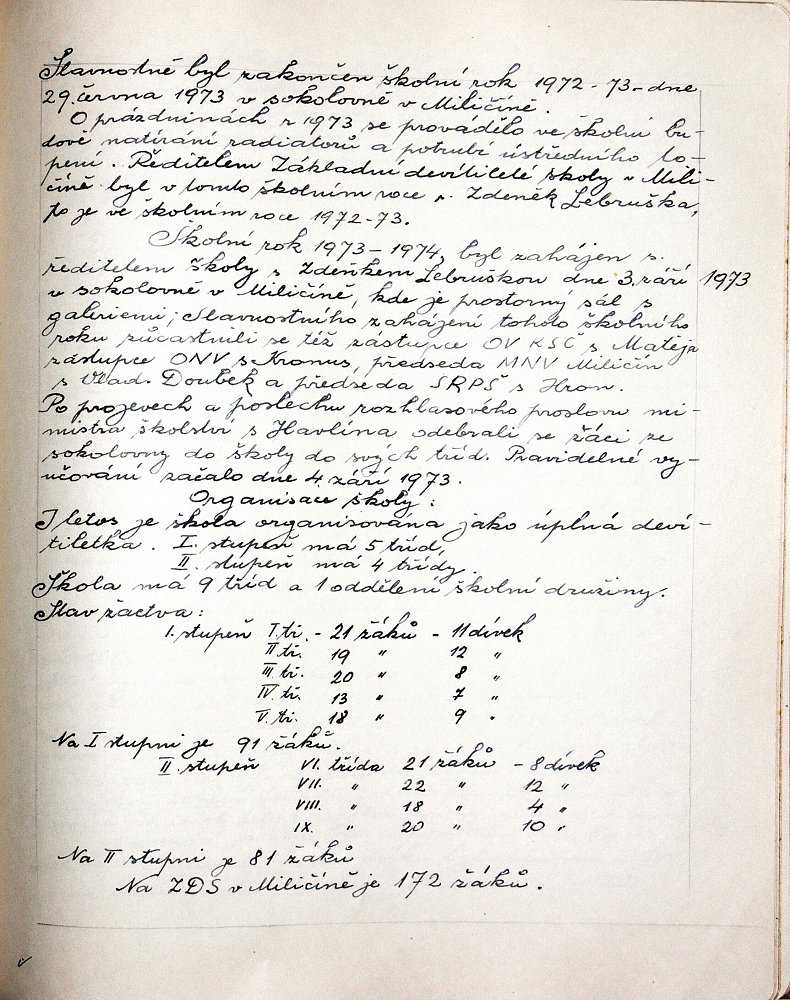 Slavnostně byl zakončen školní rok 1972-73-dne
29. června 1973 v sokolovně v Miličíně.
O prázdninách r 1973 se provádělo ve školní bu-
dově natírání radiátorů a potrubí ústředního to-
pení. Ředitelem Základní devítileté školy v Mili-
číně byl v tomto školním roce s. Zdeněk Lebruška,
to je ve školním roce 1972-73.
Školní rok 1973-1974, byl zahájen s.
ředitelem školy s Zdeňkem Lebruškou dne 3. září 1973
v sokolovně v Miličíně, kde je prostorný sál s
galeriemi; Slavnostního zahájení tohoto školního
roku zúčastnili se též zástupce OV KSČ s Matěja
zástupce ONV s. Kronus, předseda MNV Miličín
s Vlad. Doubek a předseda SRPŠ s Hron.
Po projevech a poslechu rozhlasového proslovu mi-
nistra školství s Havlína odebrali se žáci ze
sokolovny do školy do svých tříd. Pravidelné vy-
učování začalo dne 4. září 1973.
Organisace školy:
I letos je škola organisována jako úplná deví-
tiletka. I. stupeň má 5 tříd,
II. stupeň má 4 třídy.
Škola má 9 tříd a 1 oddělení školní družiny.
Stav žactva:
I. stupeň I.tř. - 21 žáků - 11 dívek
II tř. 19 " 12 "
III tř. 20 " 8 "
IV. tř. 13 " 7 "
V. tř. 18 " 9 "
Na I stupni je 91 žáků.
II. stupeň VI. třída 21 žáků - 8 dívek
VII. " 22 " 12 "
VIII. " 18 " 4 "
IX. " 20 " 10 "
Na II stupni je 81 žáků
Na ZDŠ v Miličíně je 172 žáků.